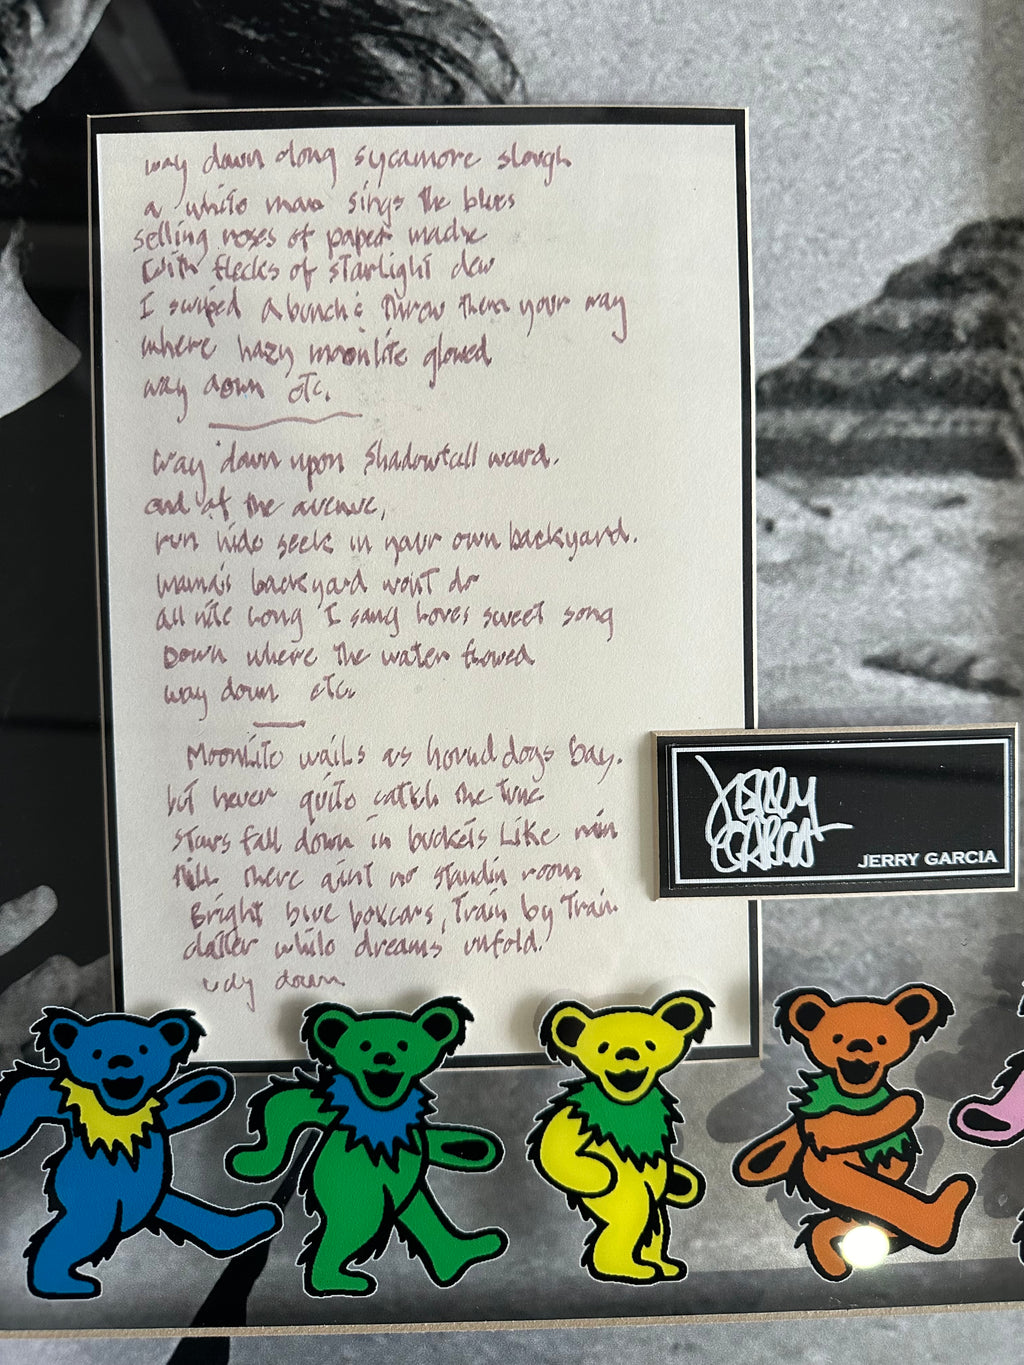 way down along sycamore slough
a white man sings the blues
selling roses of paper mache
with flecks of starlight dew
I swiped a bunch & threw them your way
where hazy moonlite glowed
way down etc.
way down upon Shadowfall ward.
and at the avenue,
run hide seek in your own backyard.
mama's backyard won't do
all nite long I sang loves sweet song
Down where the water flowed
way down etc.
Moonlite wails as hound dogs bay.
but never quite catch the tune
stars fall down in buckets like rain
till there aint no standin room
Bright blue boxcars, train by train
clatter while dreams unfold.
way down
JERRY
GARCIA
JERRY GARCIA